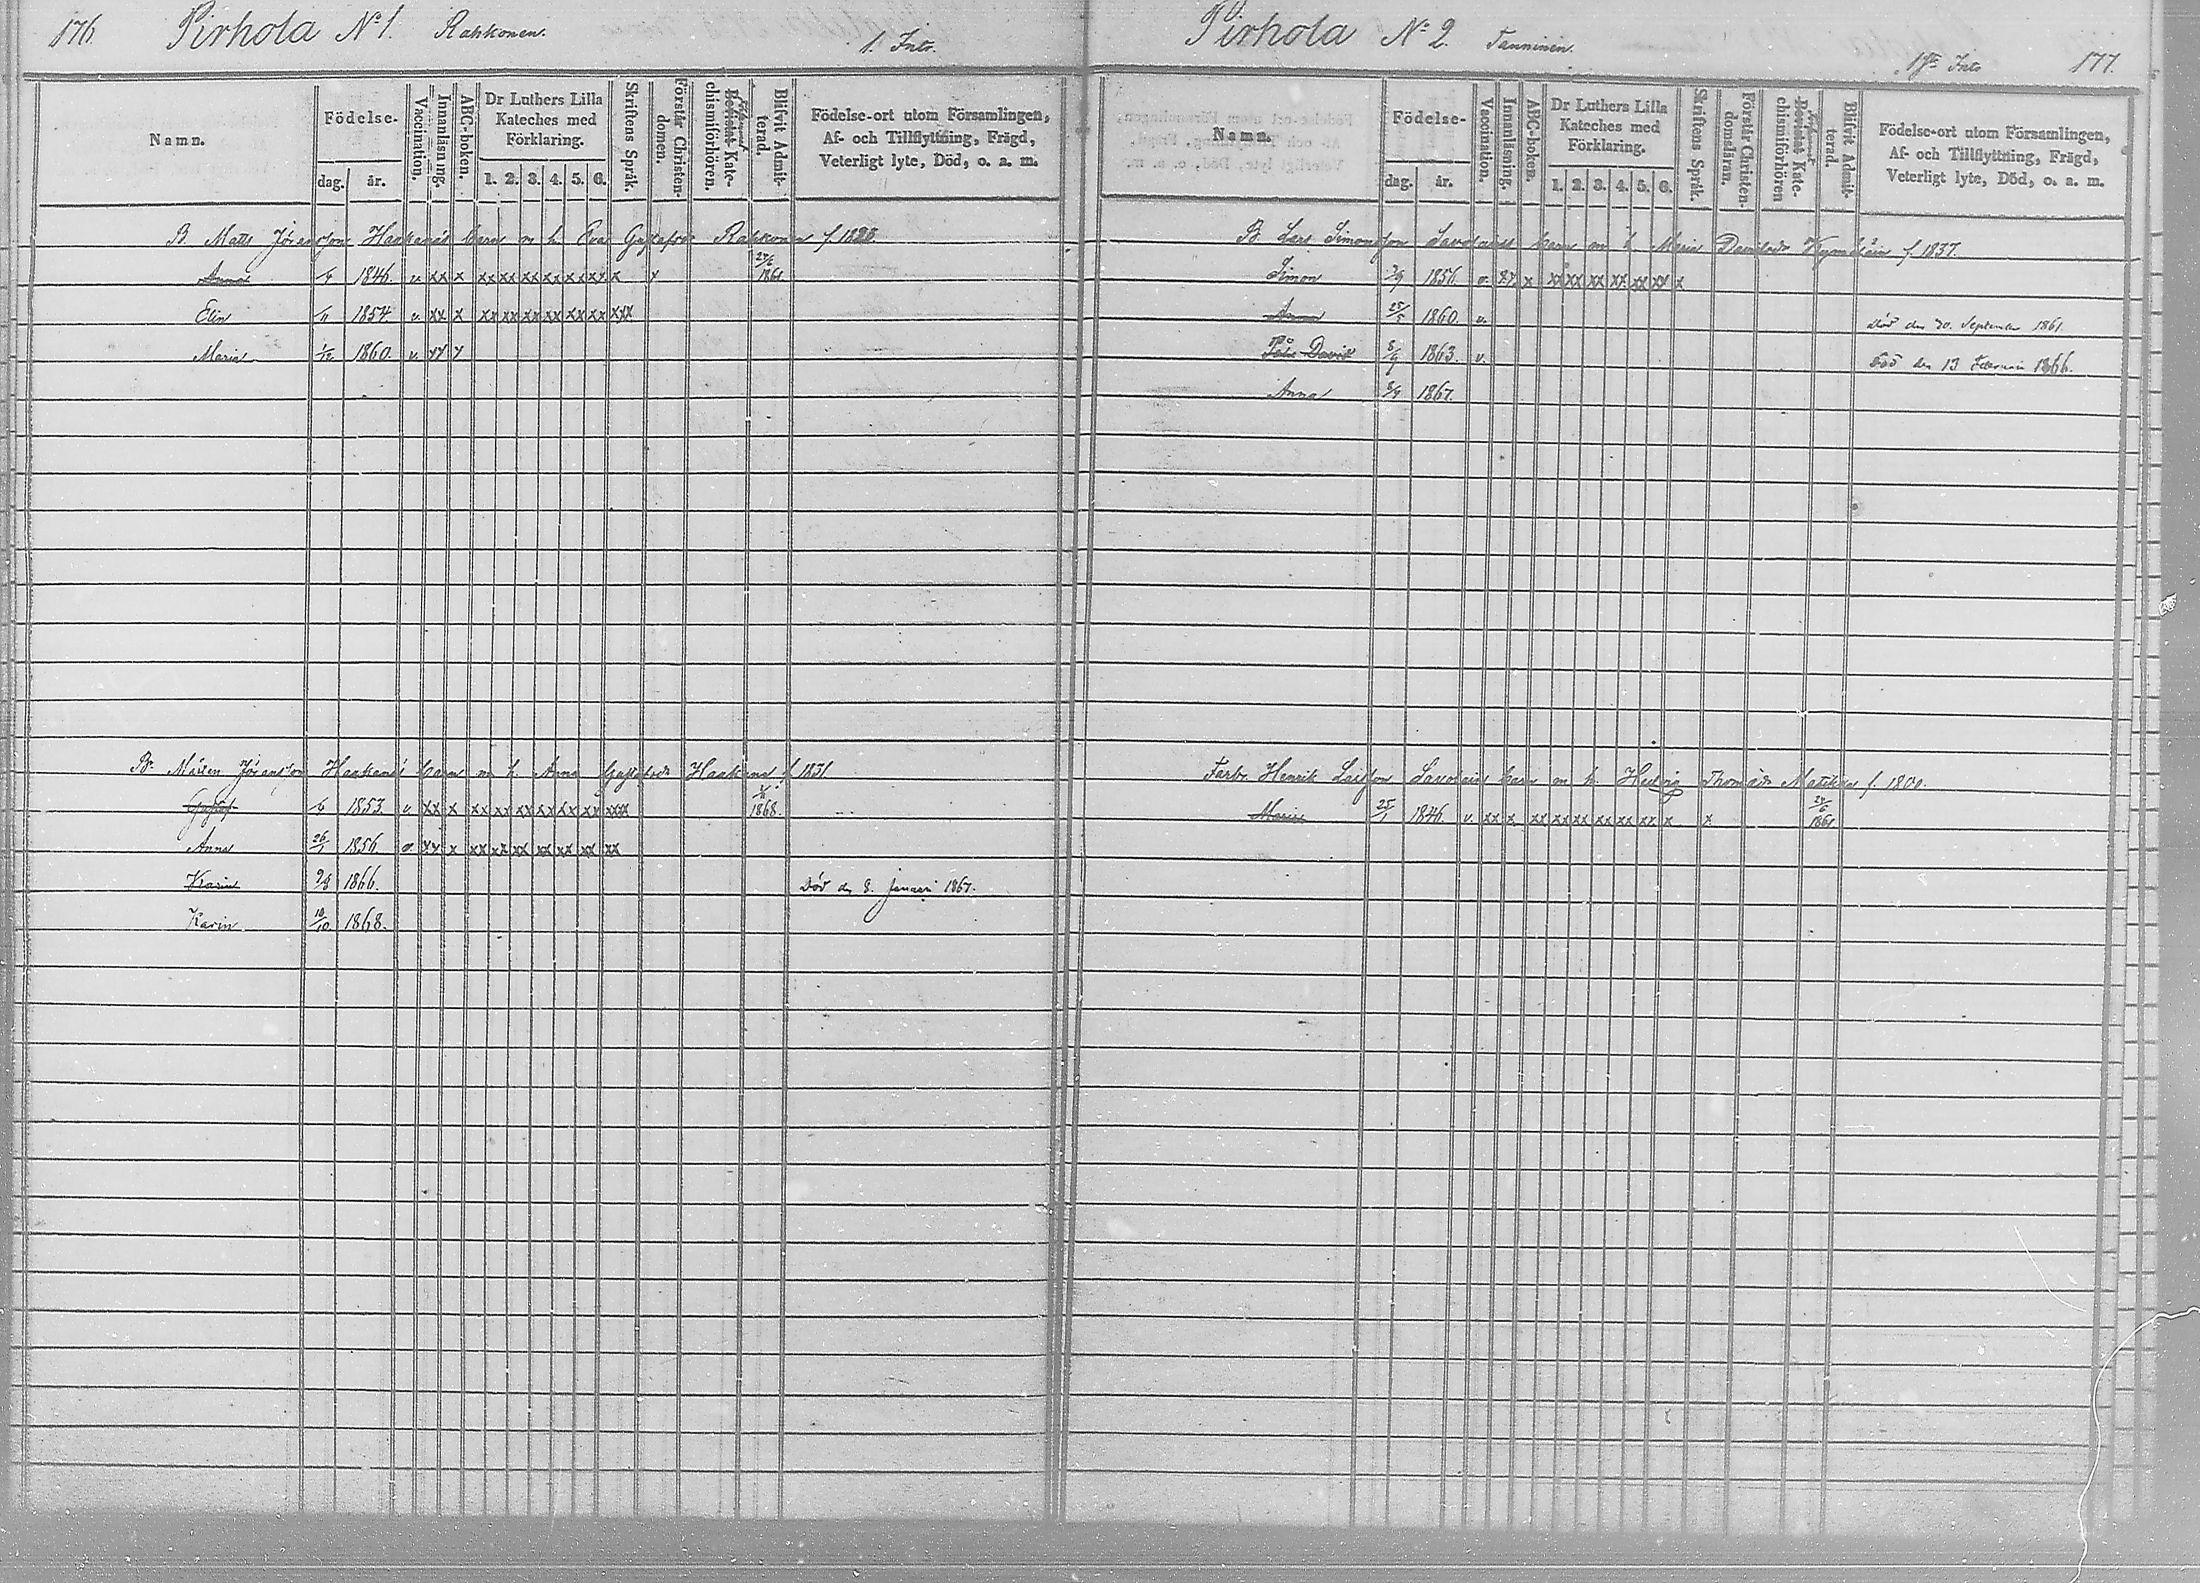 176. Pirhola No 1. Rahkonen. 1. Intr.
Namn.
Födelse-
dag. år.
Vaccination.
Innanläsning.
ABC-boken.
Dr Luthers Lilla
Kateches med
Förklaring.
1. 2. 3. 4. 5. 6.
Skriftens Språk.
Förstår Christen-
domen.
Kate-
chismiförhören.
Blifvit Admit-
terad.
Födelse-ort utom Församlingen,
Af- och Tillflyttning, Frägd,
Veterligt lyte, Död, o. a. m.
B. Matts Haakanas barn m. h. Eva Rahkonen f.
Anna 1846. v. xx x xx xx xx xx xx xx x x 24/6 1861.
Elin 1854. v. xx x xx xx xx xx xx xx xxx
Maria 1/12 1860. v. xx x
Br. Mårten Jöransson Haakana's barn m. h. Anna Haakana f. 1831
1853. v. xx x xx xx xx xx xx xx xxx 1868.
Anna 26/1 1856. v. xx x xx xx xx xx xx xx xx
Karin 9/8 1866. Död d. 8. Januari 1867.
Karin 10/10 1868.
Pirhola No 2. Tanninen. 1. Intr. 177.
Namn.
Födelse-
dag. år.
Vaccination.
Innanläsning.
ABC-boken.
Dr Luthers Lilla
Kateches med
Förklaring.
1. 2. 3. 4. 5. 6.
Skriftens Språk.
Förstår Christen-
domsläran.
Kate-
chismiförhören
Blifvit Admit-
terad.
Födelse-ort utom Församlingen,
Af- och Tillflyttning, Frägd,
Veterligt lyte, Död, o. a. m.
B. Lars Simonsson barn m. h. Maria f. 1837.
Simon 1856. v. xx x xx xx xx xx xx xx x
Anna 25/5 1860. v. död den 20. September 1861.
David 8/9 1863. v. död den 13 Februari 1866.
Anna 1867.
Farbr. Henrik barn m. h. Hedvig f. 1800.
Maria 25/1 1846. v. xx x xx xx xx xx xx xx x x 24/6 1861